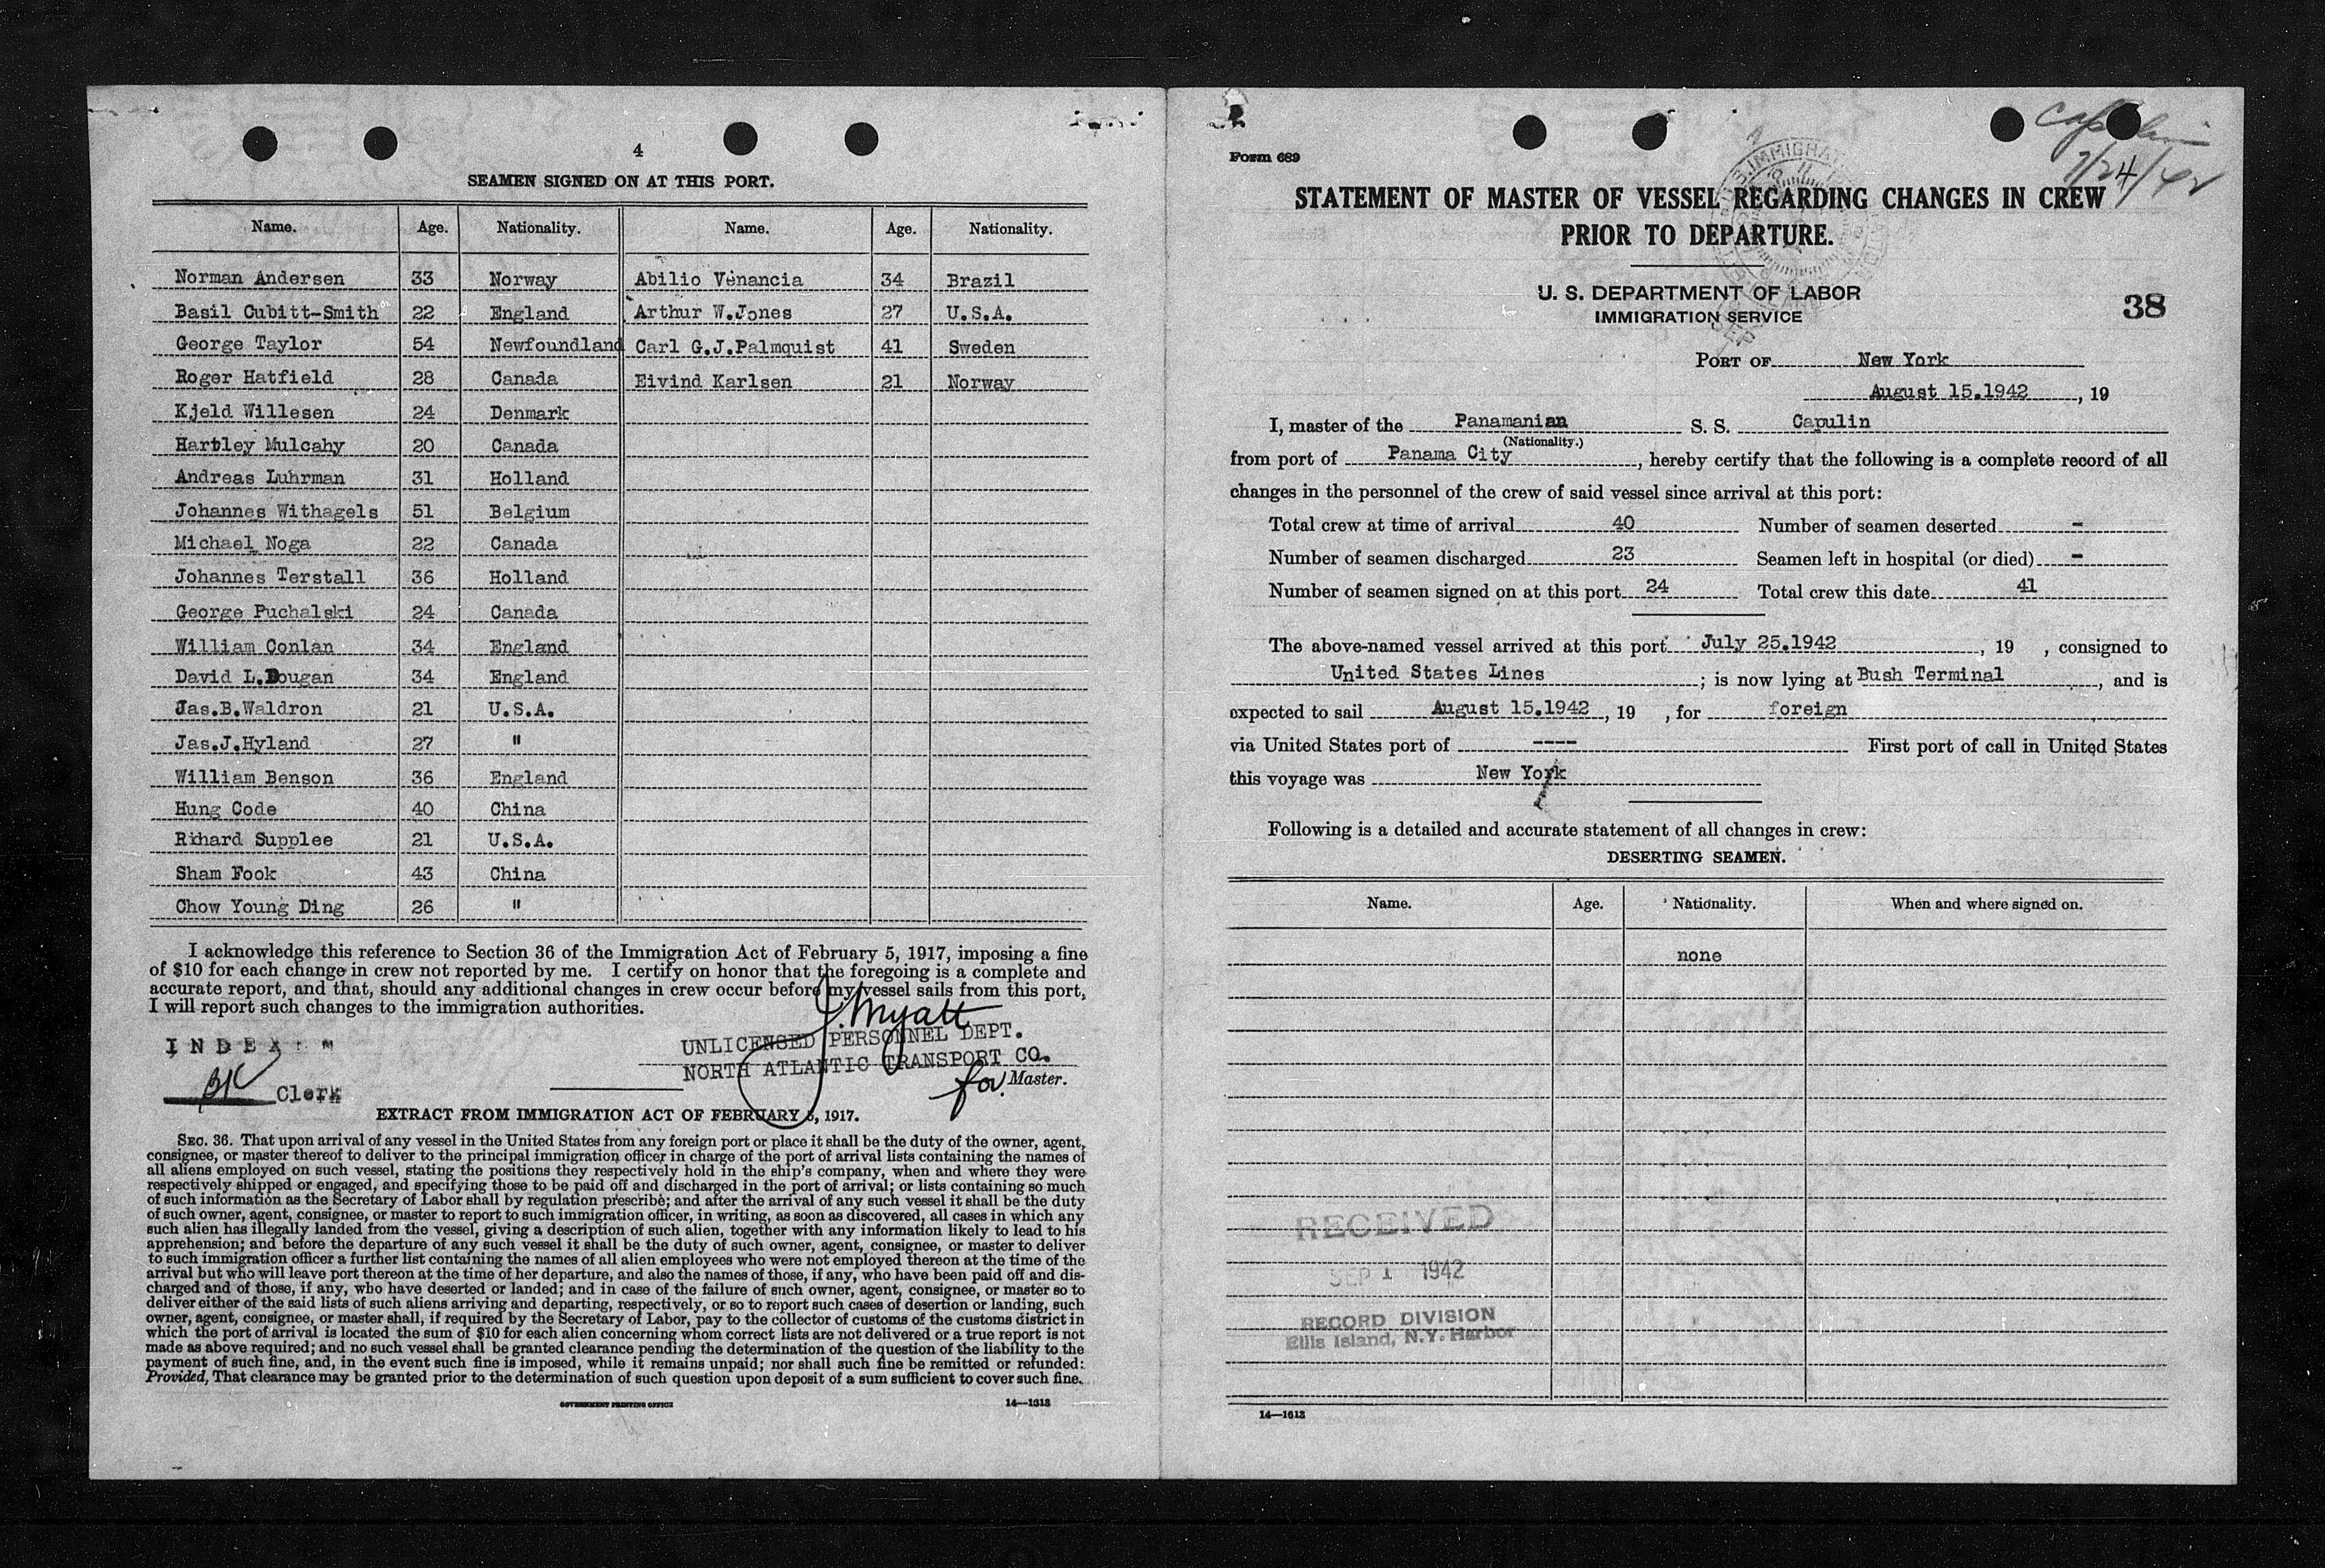 4
SEAMEN SIGNED ON AT THIS PORT.
Name. Age. Nationality. Name. Age. Nationality.
Norman Andersen 33 Norway Abilio Venancia 34 Brazil
Basil Cubitt-Smith 22 England Arthur W.Jones 27 U.S.A.
George Taylor 54 Newfoundland Carl G.J.Palmquist 41 Sweden
Roger Hatfield 28 Canada Eivind Karlsen 21 Norway
Kjeld Willesen 24 Denmark
Hartley Mulcahy 20 Canada
Andreas Luhrman 31 Holland
Johannes Withagels 51 Belgium
Michael Noga 22 Canada
Johannes Terstall 36 Holland
George Puchalski 24 Canada
William Conlan 34 England
David L.Dougan 34 England
Jas.B.Waldron 21 U.S.A.
Jas.J.Hyland 27 "
William Benson 36 England
Hung Code 40 China
Rihard Supplee 21 U.S.A.
Sham Fook 43 China
Chow Young Ding 26 "
I acknowledge this reference to Section 36 of the Immigration Act of February 5, 1917, imposing a fine
of $10 for each change in crew not reported by me. I certify on honor that the foregoing is a complete and
accurate report, and that, should any additional changes in crew occur before my vessel sails from this port,
I will report such changes to the immigration authorities.
J. Myatt
UNLICENSED PERSONNEL DEPT.
NORTH ATLANTIC TRANSPORT CO.
for Master.
INDEX
Clerk
EXTRACT FROM IMMIGRATION ACT OF FEBRUARY 5, 1917.
SEC. 36. That upon arrival of any vessel in the United States from any foreign port or place it shall be the duty of the owner, agent,
consignee, or master thereof to deliver to the principal immigration officer in charge of the port of arrival lists containing the names of
all aliens employed on such vessel, stating the positions they respectively hold in the ship's company, when and where they were
respectively shipped or engaged, and specifying those to be paid off and discharged in the port of arrival; or lists containing so much
of such information as the Secretary of Labor shall by regulation prescribe; and after the arrival of any such vessel it shall be the duty
of such owner, agent, consignee, or master to report to such immigration officer, in writing, as soon as discovered, all cases in which any
such alien has illegally landed from the vessel, giving a description of such alien, together with any information likely to lead to his
apprehension; and before the departure of any such vessel it shall be the duty of such owner, agent, consignee, or master to deliver
to such immigration officer a further list containing the names of all alien employees who were not employed thereon at the time of the
arrival but who will leave port thereon at the time of her departure, and also the names of those, if any, who have been paid off and dis-
charged and of those, if any, who have deserted or landed; and in case of the failure of such owner, agent, consignee, or master so to
deliver either of the said lists of such aliens arriving and departing, respectively, or so to report such cases of desertion or landing, such
owner, agent, consignee, or master shall, if required by the Secretary of Labor, pay to the collector of customs of the customs district in
which the port of arrival is located the sum of $10 for each alien concerning whom correct lists are not delivered or a true report is not
made as above required; and no such vessel shall be granted clearance pending the determination of the question of the liability to the
payment of such fine, and, in the event such fine is imposed, while it remains unpaid; nor shall such fine be remitted or refunded:
Provided, That clearance may be granted prior to the determination of such question upon deposit of a sum sufficient to cover such fine.
GOVERNMENT PRINTING OFFICE 14—1613
Form 689
7/24/42
STATEMENT OF MASTER OF VESSEL REGARDING CHANGES IN CREW
PRIOR TO DEPARTURE.
U. S. DEPARTMENT OF LABOR
IMMIGRATION SERVICE
38
PORT OF New York
August 15.1942, 19
I, master of the Panamanian S. S. Capulin
(Nationality.)
from port of Panama City, hereby certify that the following is a complete record of all
changes in the personnel of the crew of said vessel since arrival at this port:
Total crew at time of arrival 40 Number of seamen deserted -
Number of seamen discharged 23 Seamen left in hospital (or died) -
Number of seamen signed on at this port 24 Total crew this date 41
The above-named vessel arrived at this port July 25.1942, 19 , consigned to
United States Lines; is now lying at Bush Terminal, and is
expected to sail August 15.1942, 19 , for foreign
via United States port of ---- First port of call in United States
this voyage was New York
Following is a detailed and accurate statement of all changes in crew:
DESERTING SEAMEN.
Name. Age. Nationality. When and where signed on.
none
RECEIVED
SEP 1 1942
RECORD DIVISION
Ellis Island, N.Y. Harbor
14—1613